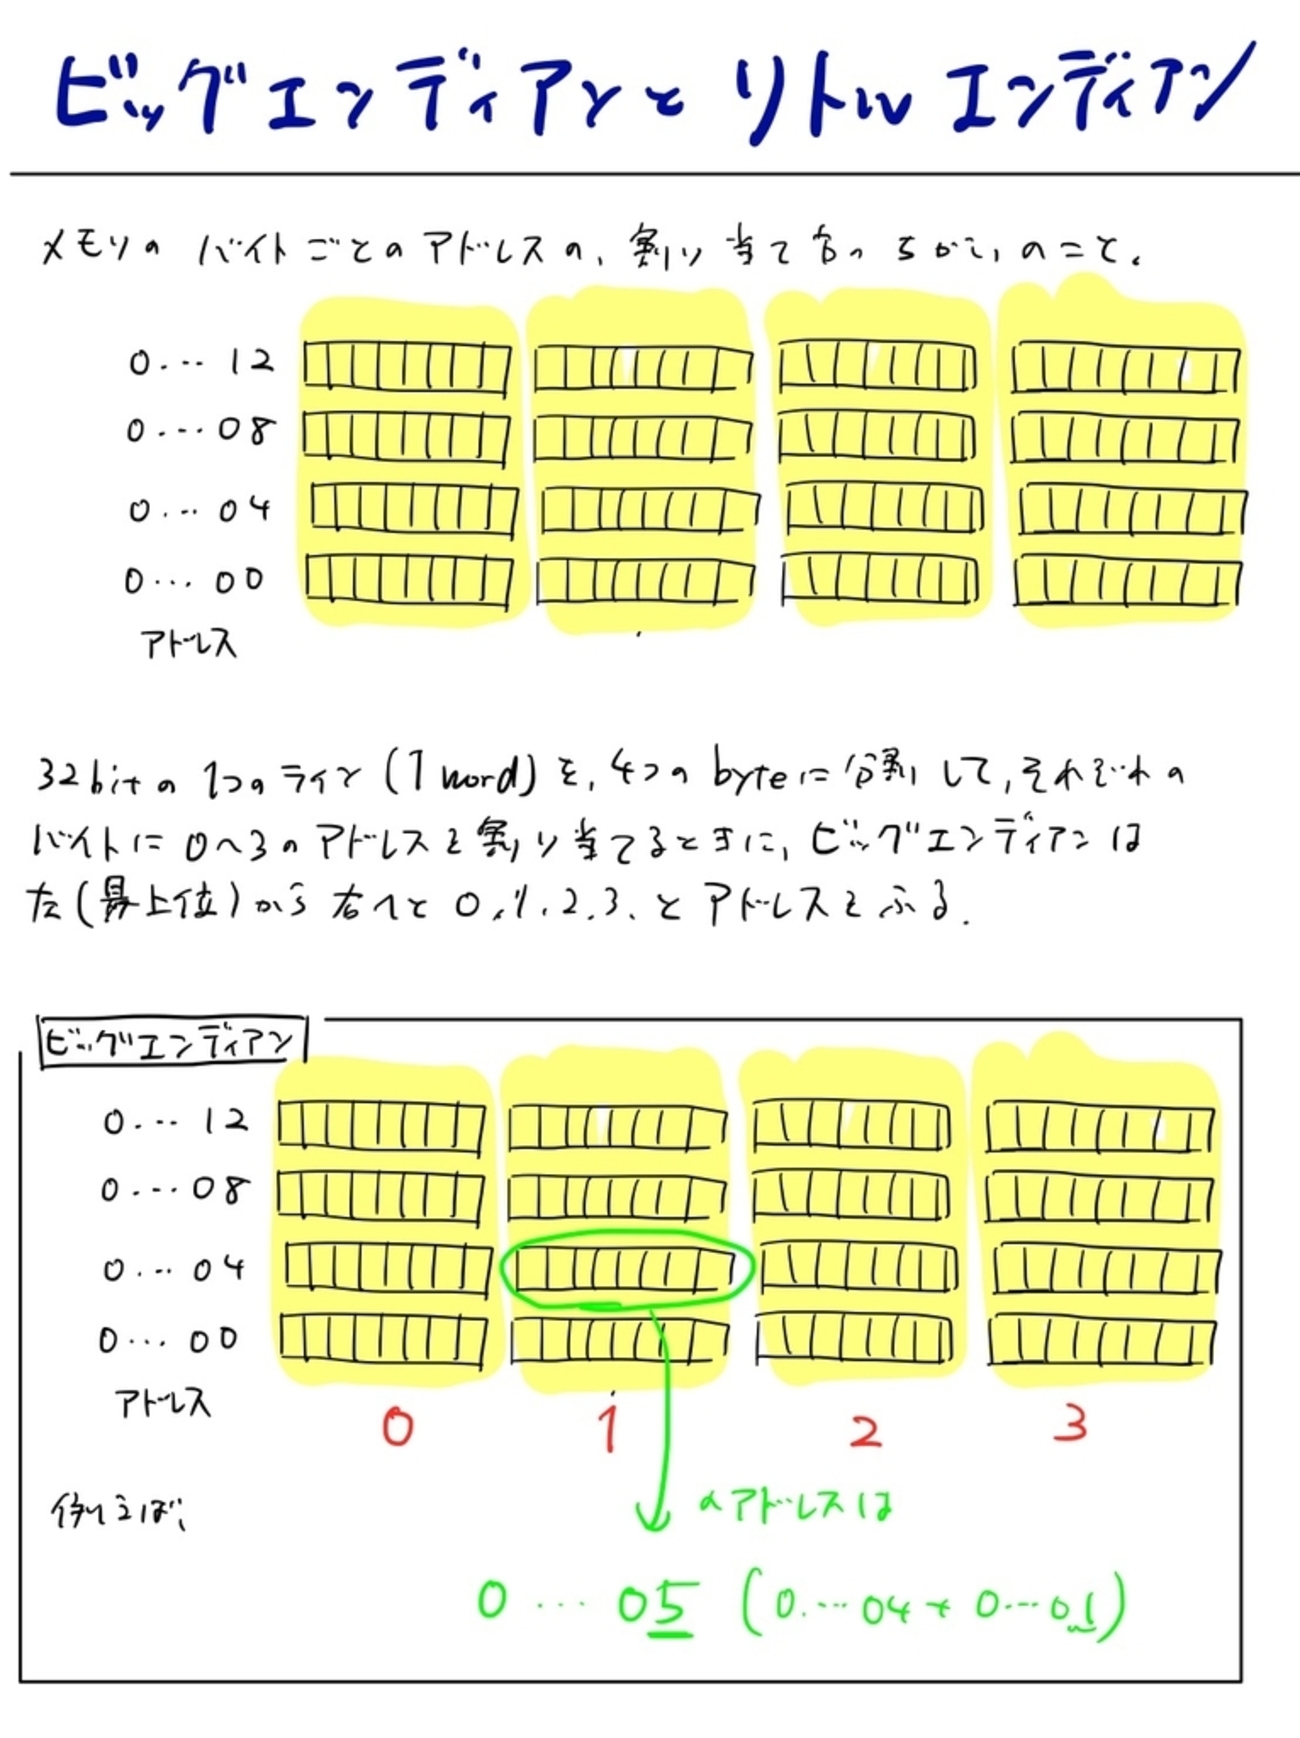 ビッグエンディアンと リトルエンディアン
メモリの バイトごとのアドレスの、割り当て方のちがいのこと。
0...12
0...08
0...04
0...00
アドレス
32bitの1つのライン(1word)を、4つのbyteに分割して、それぞれの
バイトに0〜3のアドレスを割り当てるときに、ビッグエンディアンは
左(最上位)から右へと0,1,2,3、とアドレスをふる。
ビッグエンディアン
0...12
0...08
0...04
0...00
アドレス
0 1 2 3
例えば、
のアドレスは
0...05 (0...04+0...01)